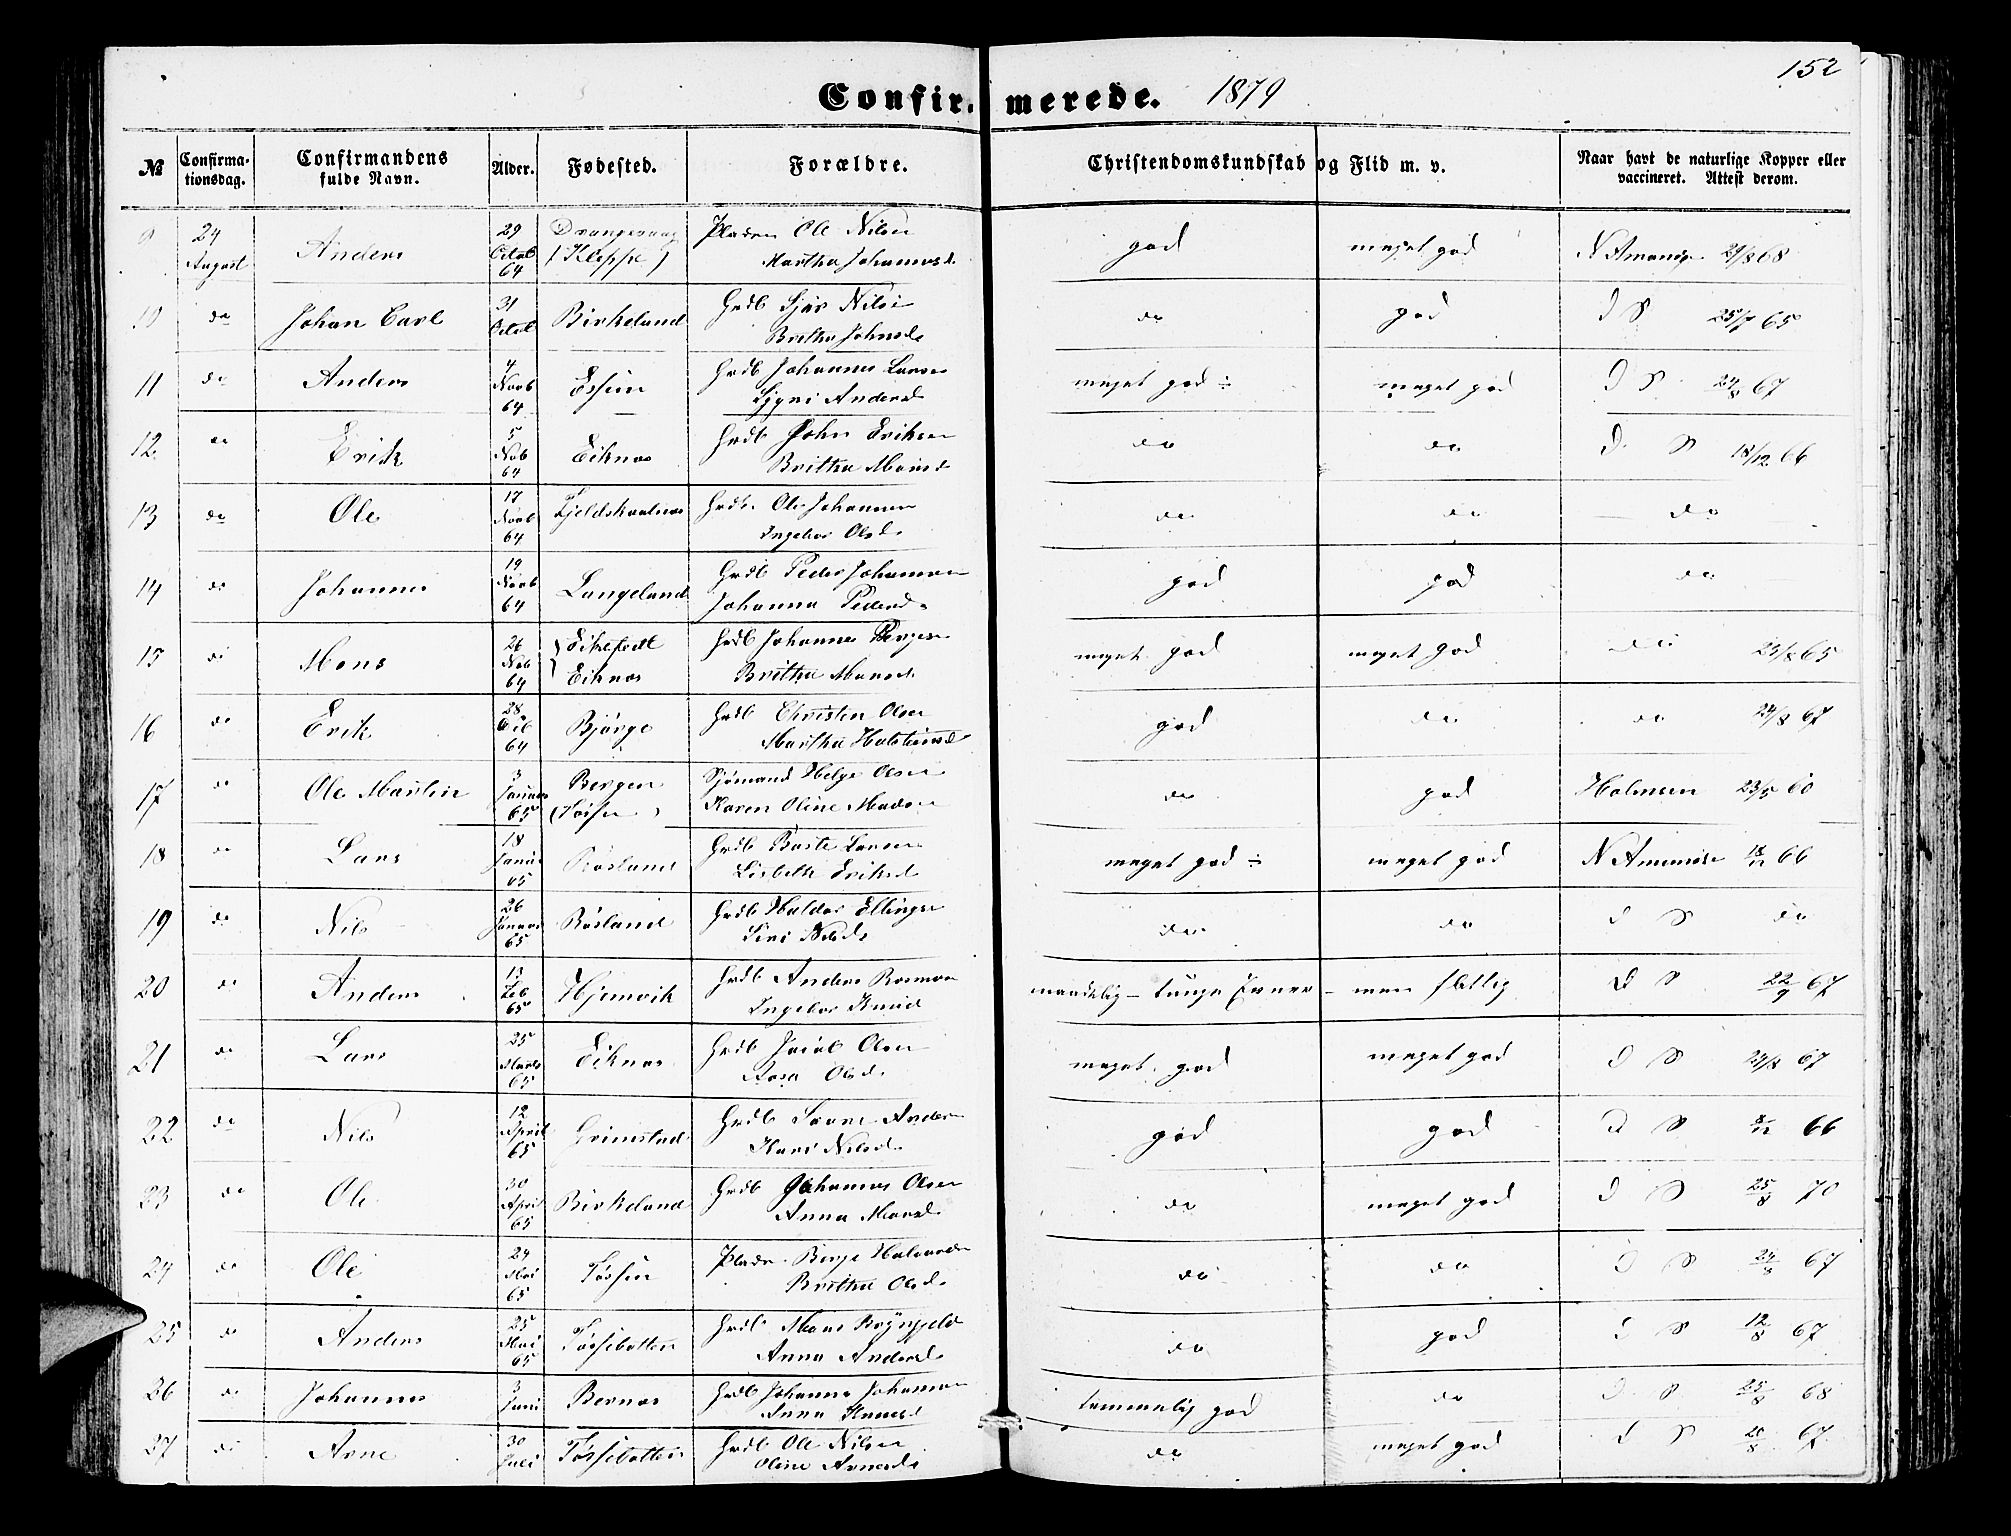 152
Confirmerede. 1879
№ Confirmationsdag. Confirmandens fulde Navn. Alder. Fødested. Forældre. Christendomskundskab og Flid m. v. Naar havt de naturlige Kopper eller vaccineret. Attest derom.
9 24 August Anders 29 Octob 64 (Kleppe) Pladsm Ole Nilsen Martha Johannesd. god meget god 68
10 do Johan Carl 31 Octob Birkeland Grdb Sjur Nilse Britha Johnsd. do god D S 25/7 65
11 do Anders 4 Novb 64 Grdb Johannes Larsen Andersd. meget god ÷ meget god D S 24/8 67
12 do Erik 5 Nob 64 Eiknæs Grdb John Eriksen Britha Monsd do do D S 18/12 66
13 do Ole 17 Novb 64 Grdb. Ole Johannesen Ingebor Olsd. do do do
14 do Johannes 19 Novb 64 Langeland Grdb Peder Johannesen Johanna Pedersd. god god do
15 do Mons 26 Nob 64 Eiknæs Grdb Johannes Britha Monsd. meget god meget god do 23/8 65
16 do Erik 28 64 Bjørge Grdb Christen Olsen Martha god do do 24/8 67
17 do Ole Martin 3 Januar 65 Bergen Sjömand Helge Olsen Karen Oline do god Holmsen 23/5
18 do Lars 18 Januar 65 Røsland Grdb Larsen Lisbeth Eriksd meget god ÷ meget god 18/12 66
19 do Nils 26 Januar 65 Røsland Grdb Haldor Ellingsen Siri Nilsd. do do D S do
20 do Anders 13 Feb 65 Hjemvik Grdb Anders Rasmssn Ingebor maadelig – tunge Evner – men flittig D S 22/9 67
21 do Lars 25 Marts 65 Eiknæs Grdb Jacob Olsen Olsd. meget god meget god D S 24/8 67
22 do Nils 12 April 65 Grimstad Grdb Anders Kari Nilsd. god god D S 8/12 66
23 do Ole 30 April 65 Birkeland Grdb Johannes Olsen Anna Monsd. do meget god D S 25/8 70
24 do Ole 24 Mai 65 Tøssen Pladsm. Berge Britha Olsd. do do D S 24/8 67
25 do Anders 25 Mai 65 Tøssebotten Grdb Mons Anna Andersd. do god D S 12/8 67
26 do Johannes 3 Juni Bernæs Grdb Johannes Johannesen Anna temmelig god do D. S. 25/8 68
27 do Arne 30 Juli Tøssebotten Grdb Ole Nilsen Oline Arnesd. do meget god D S 67